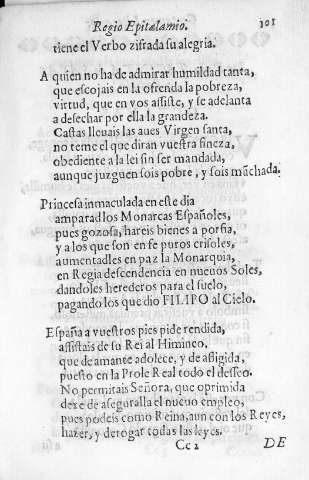 Regio Epitalamio. 301
tiene el Verbo zifrada su alegria.
A quien no ha de admirar humildad tanta,
que escojais en la ofrenda la pobreza,
virtud, que en vos assiste, y se adelanta
a desechar por ella la grandeza.
Castas lleuais las aues Virgen santa,
no teme el que diran vuestra fineza,
obediente a la lei sin ser mandada,
aunque juzguen sois pobre, y sois mãchada.
Princesa inmaculada en este dia
amparad los Monarcas Españoles,
pues gozosa, hareis bienes a porfia,
y a los que son en fe puros crisoles,
aumentadles en paz la Monarquia,
en Regia descendencia en nueuos Soles,
dandoles herederos para el suelo,
pagando los que dio FILIPO al Cielo.
España a vuestros pies pide rendida,
assistais de su Rei al Himineo,
que de amante adolece, y de afligida,
puesto en la Prole Real todo el desseo.
No permitais Señora, que oprimida
dexe de aseguralla el nueuo empleo,
pues podeis como Reina, aun con los Reyes,
hazer, y derogar todas las leyes.
Cc 2 DE